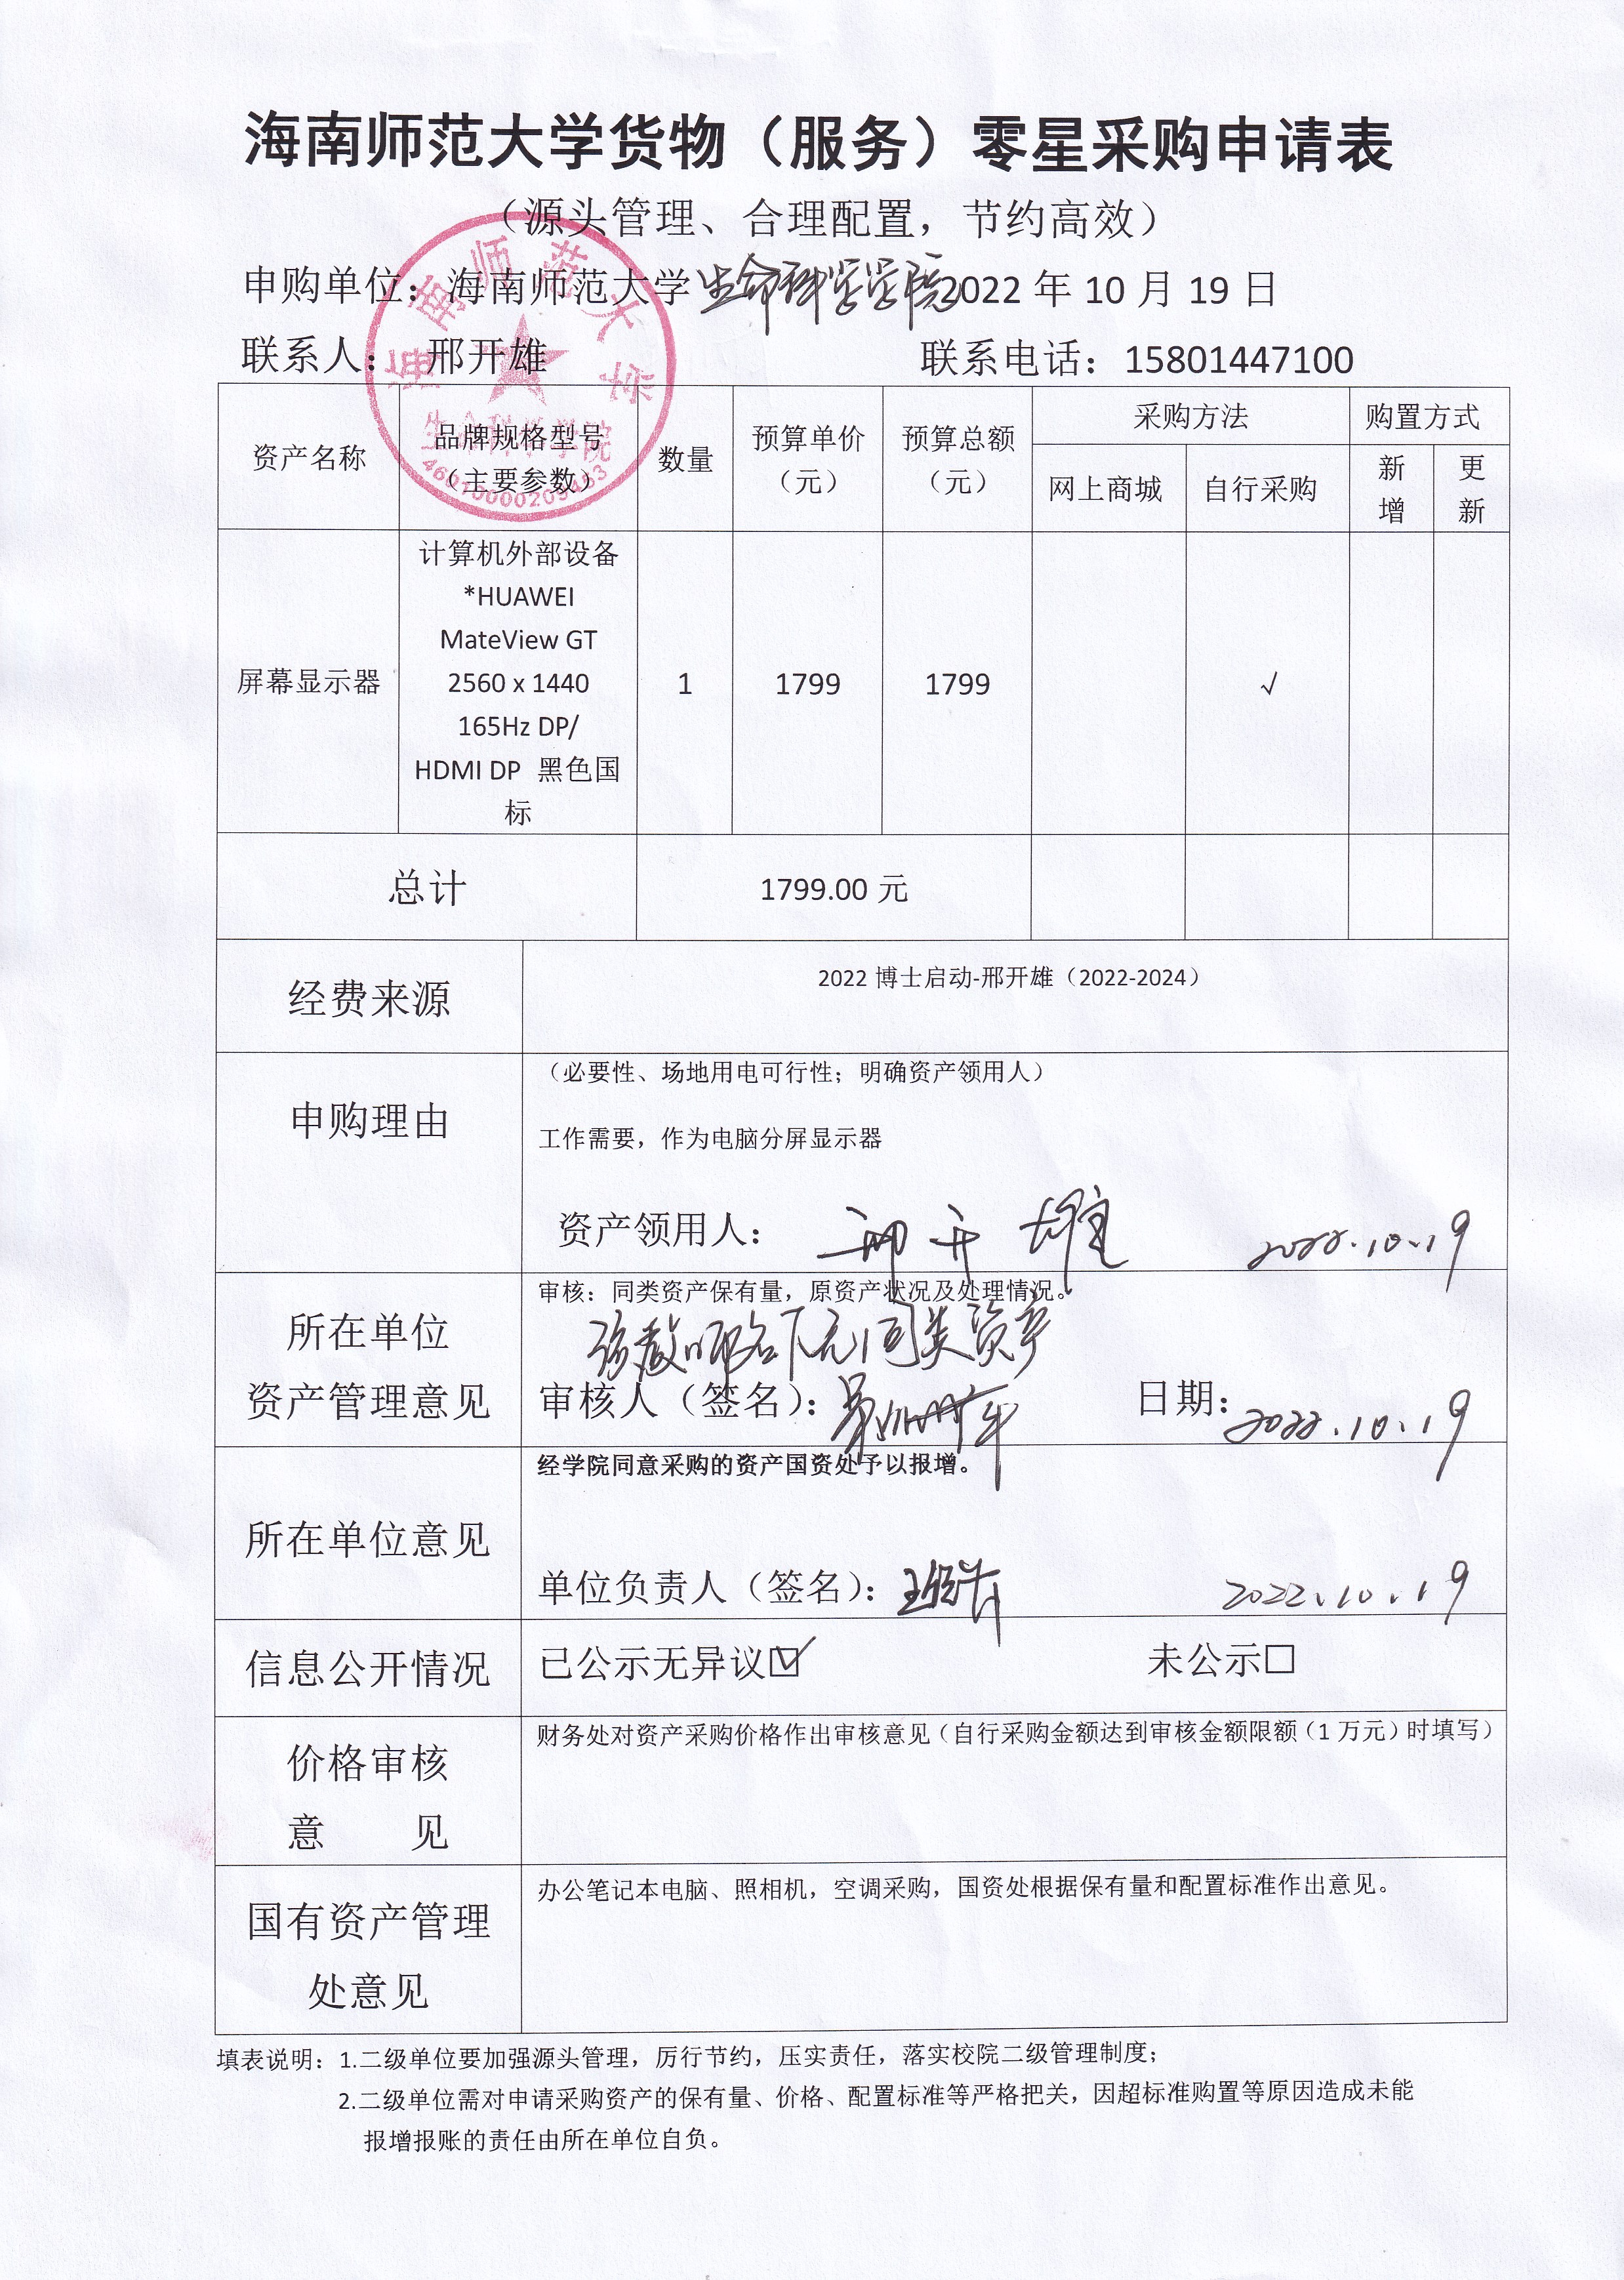 海南师范大学货物（服务）零星采购申请表
（源头管理、合理配置，节约高效）
申购单位：海南师范大学生命科学学院2022 年 10 月 19 日
联系人： 邢开雄 联系电话：15801447100
海南师范大学
生命科学学院
资产名称 品牌规格型号（主要参数） 数量 预算单价（元） 预算总额（元） 采购方法 购置方式
网上商城 自行采购 新增 更新
计算机外部设备
*HUAWEI
MateView GT
屏幕显示器 2560 x 1440 1 1799 1799 √
165Hz DP/
HDMI DP 黑色国
标
总计 1799.00 元
经费来源 2022 博士启动-邢开雄（2022-2024）
（必要性、场地用电可行性；明确资产领用人）
申购理由
工作需要，作为电脑分屏显示器
资产领用人： 邢开雄 2022.10.19
审核：同类资产保有量，原资产状况及处理情况。
所在单位
该教师名下无同类资产
资产管理意见 审核人（签名）： 日期：2022.10.19
经学院同意采购的资产国资处予以报增。
所在单位意见
单位负责人（签名）： 2022.10.19
信息公开情况 已公示无异议☑ 未公示□
财务处对资产采购价格作出审核意见（自行采购金额达到审核金额限额（1 万元）时填写）
价格审核
意 见
办公笔记本电脑、照相机，空调采购，国资处根据保有量和配置标准作出意见。
国有资产管理
处意见
填表说明：1.二级单位要加强源头管理，厉行节约，压实责任，落实校院二级管理制度；
2.二级单位需对申请采购资产的保有量、价格、配置标准等严格把关，因超标准购置等原因造成未能
报增报账的责任由所在单位自负。